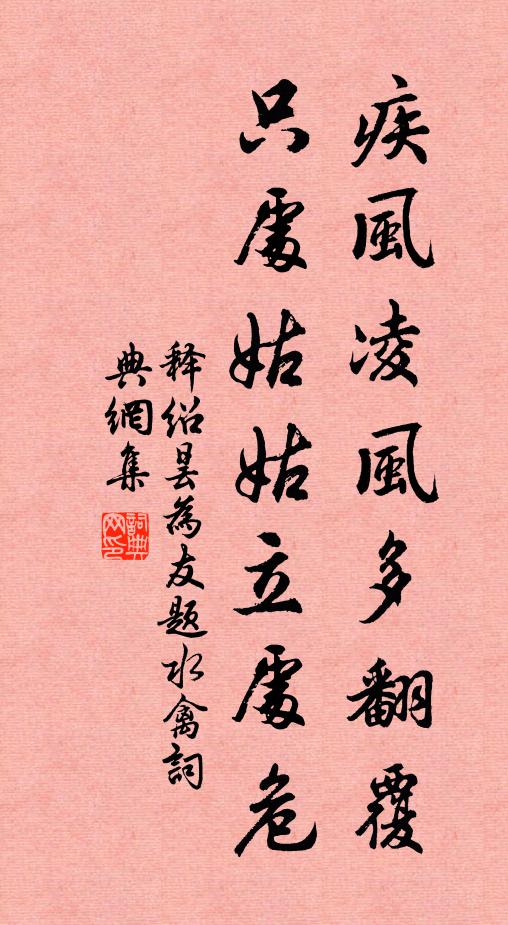 疾風凌風多翻覆
只處姑姑立處危
释绍昙為友题水禽詞
典網集
詞典
网印